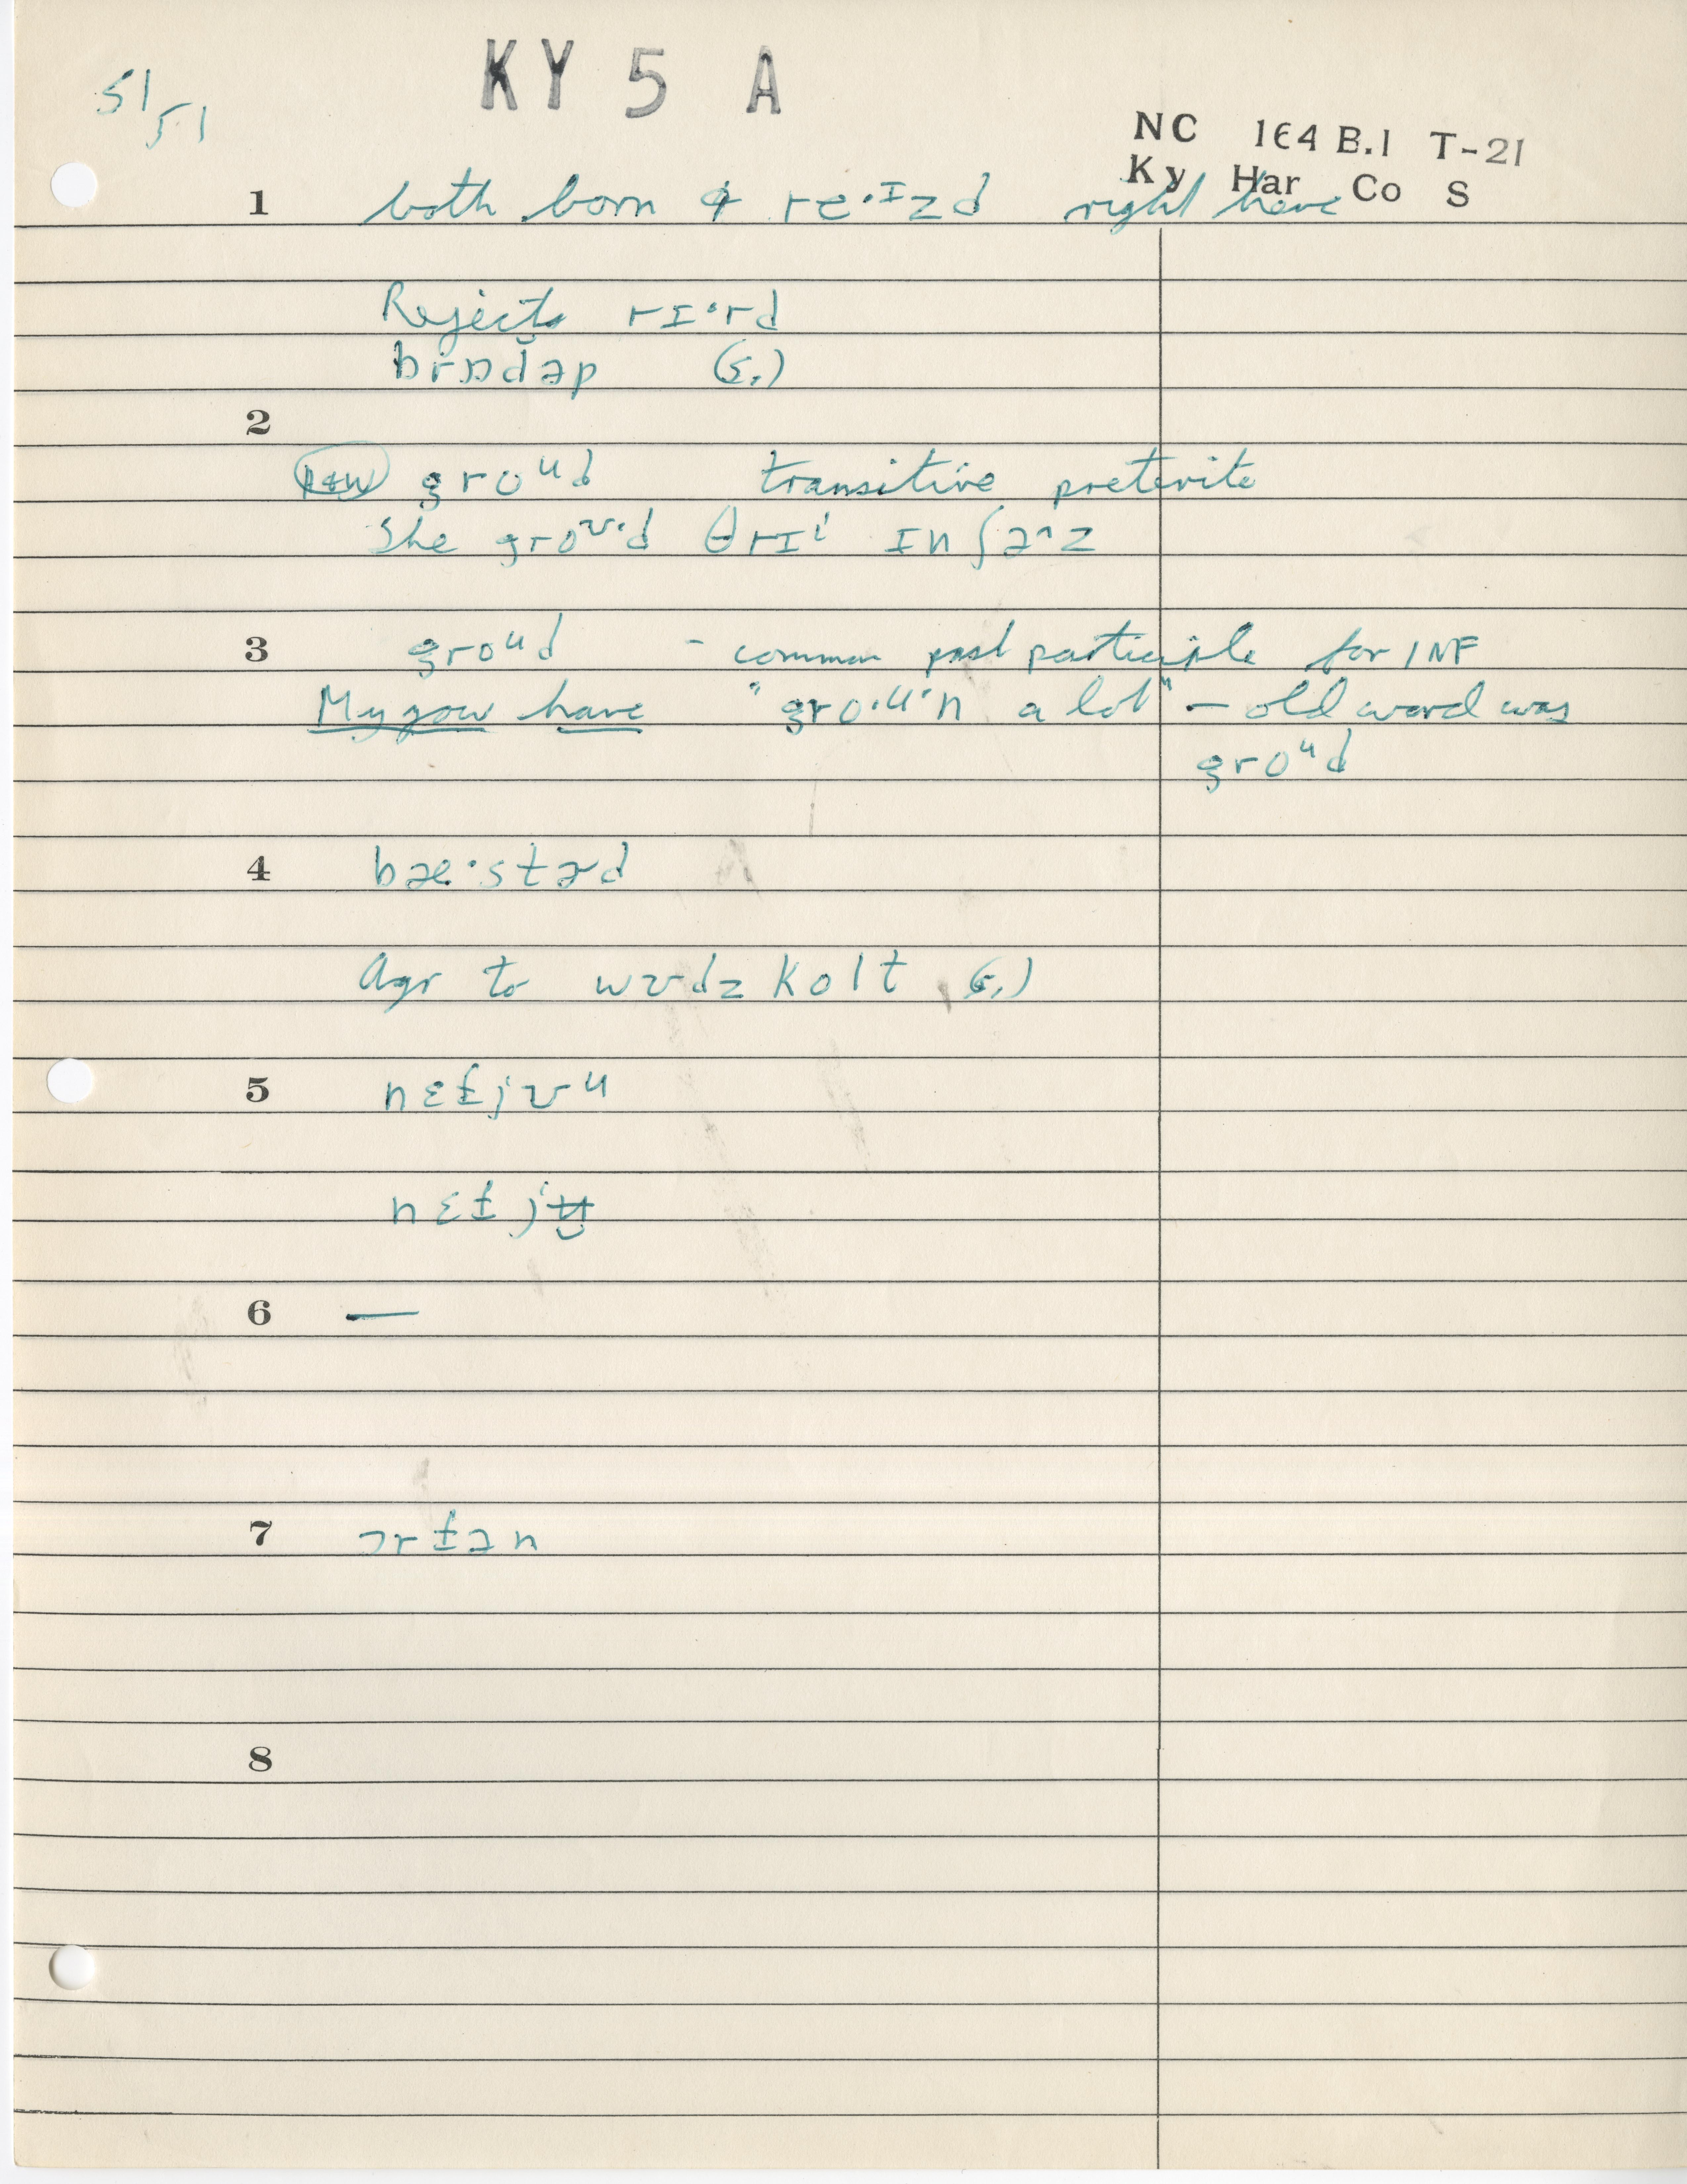 51/51
KY 5 A
NC 1E4 B.1 T-21
Ky Har Co S
1 both born & re·ɪzd right here
Rejects rɪ·rd
(s.)
2
groᵘd transitive preterite
She groᶷ·d θrɪⁱ ɪnʃɚz
3 groᵘd - common past participle for INF
have "gro·ᵘ·n a lot" — old word was
groᵘd
4 bæ·stɚd
Agr to wʊdz kolt (s.)
5 nɛt̬jʊᵘ
nɛt̬jʉ
6 —
7 ɔrt̬ən
8